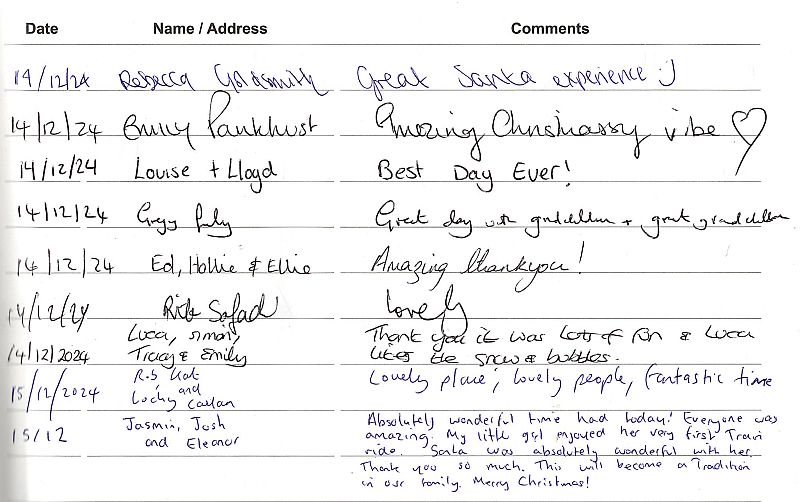 Date Name / Address Comments
14/12/24 Rebecca Goldsmith Great Santa experience :)
14/12/24 Emily Pankhurst Amazing Christmassy vibe ♡
14/12/24 Louise + Lloyd Best Day Ever!
14/12/24 Gregg Great day with grandchildren + great grandchildren
14/12/24 Ed, Hollie & Ellie Amazing thankyou!
14/12/24 Rick Lovely
Luca, Simon, Thank you it was lots of fun & Luca
14/12/2024 Tracy & Emily likes the snow & bubbles.
15/12/2024 Lovely place, lovely people, fantastic time
and
Lochy Caelan
15/12 Jasmin, Josh Absolutely wonderful time had today! Everyone was
and Eleanor amazing. My little girl enjoyed her very first Train
ride. Santa was absolutely wonderful with her.
Thank you so much. This will become a Tradition
in our family. Merry Christmas!